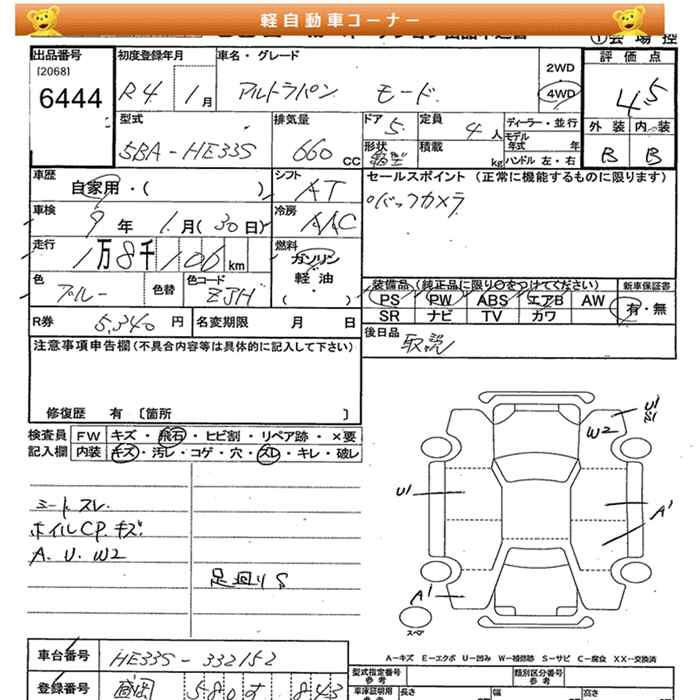 軽自動車コーナー
出品番号 初度登録年月 車名・グレード 評価点
[2068]
6444
R4 1月 アルトラパン モード 2WD 4WD 4.5
型式 排気量 ドア 定員 ディーラー・並行 外装 内装
5BA-HE33S 660 CC 5 4人 モデル年式 年
形状 積載 kg ハンドル 左・右 B B
車歴 自家用・( ) シフト AT
セールスポイント (正常に機能するものに限ります)
車検 9年 1月(30日) 冷房 AAC バックカメラ
走行 1万8千106km 燃料 ガソリン 軽油 ( )
色 ブルー 色替 色コード ZJH
装備品 (純正品に限り○をつけてください) 新車保証書
PS PW ABS エアB AW 有・無
SR ナビ TV カワ
R券 5,340円 名変期限 月 日
後日品 取説
注意事項申告欄(不具合内容等は具体的に記入して下さい)
修復歴 有 〔箇所 〕
検査員 FW キズ・飛石・ヒビ割・リペア跡・×要
記入欄 内装 キズ・汚レ・コゲ・穴・スレ・キレ・破レ
シートスレ
ホイルCP.キズ
A. U. W2
足廻りS
U1 S1
W2
U1
A1
A1
スペア
A-キズ E-エクボ U-凹み W-補修跡 S-サビ C-腐食 XX-交換済
車台番号 HE33S-332152
型式指定番号 参考 類別区分番号 参考
登録番号 盛岡 580 843
車庫証明用 参考 長さ 幅 高さ